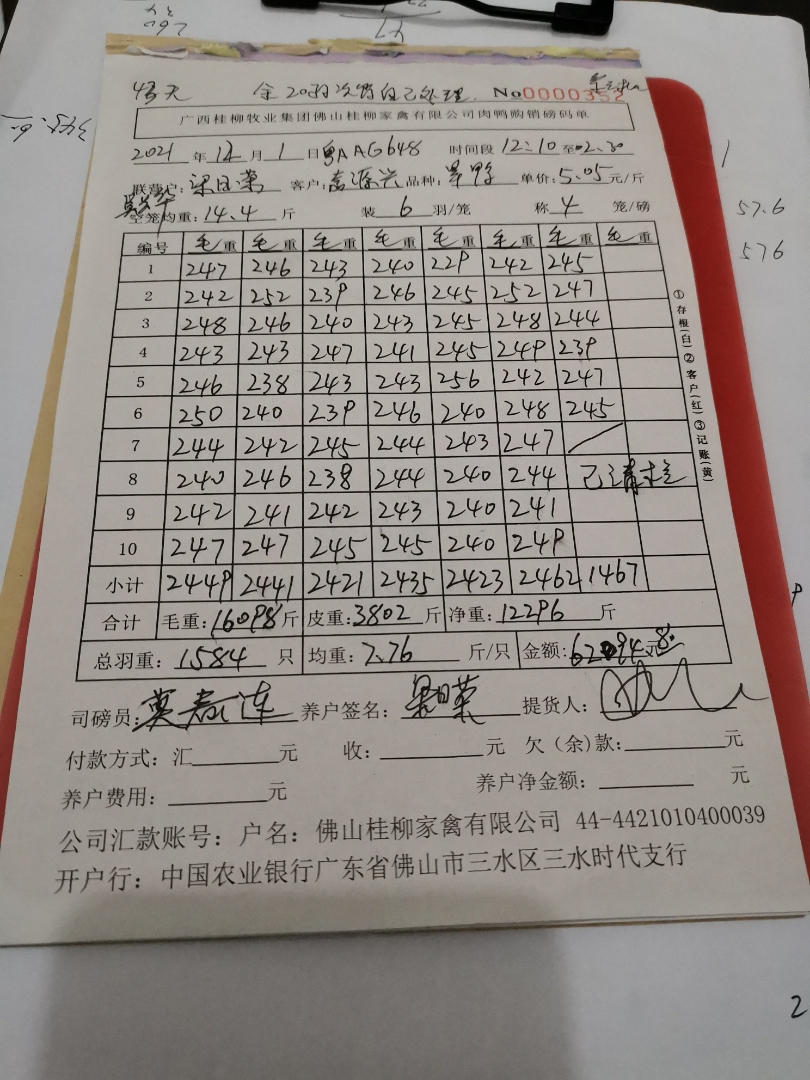 余20羽次鸭自己处理. No0000352
广西桂柳牧业集团佛山桂柳家禽有限公司肉鸭购销磅码单
2021 年 12 月 1 日 粤AAG648 时间段 12:10 至 02.30
联营户: 梁日荣 客户: 品种: 单价: 5.05 元/斤
空笼均重: 14.4 斤 装 6 羽/笼 称 4 笼/磅
编号 毛重 毛重 毛重 毛重 毛重 毛重 毛重 毛重
1 247 246 243 240 229 242 245
2 242 252 239 246 245 252 247
3 248 246 240 243 245 248 244
4 243 243 247 241 245 249 239
5 246 238 243 243 256 242 247
6 250 240 239 246 240 248 245
7 244 242 245 244 243 247
8 240 246 238 244 240 244
9 242 241 242 243 240 241
10 247 247 245 245 240 249
小计 2449 2441 2421 2435 2423 2462 1467
合计 毛重: 16098 斤 皮重: 3802 斤 净重: 12296 斤
总羽重: 1584 只 均重: 7.76 斤/只 金额: 62094.8 元
司磅员: 养户签名: 梁日荣 提货人:
付款方式: 汇 元 收: 元 欠(余)款: 元
养户费用: 元 养户净金额: 元
公司汇款账号: 户名: 佛山桂柳家禽有限公司 44-4421010400039
开户行: 中国农业银行广东省佛山市三水区三水时代支行
①存根(白)②客户(红)③记账(黄)
57.6
576
2